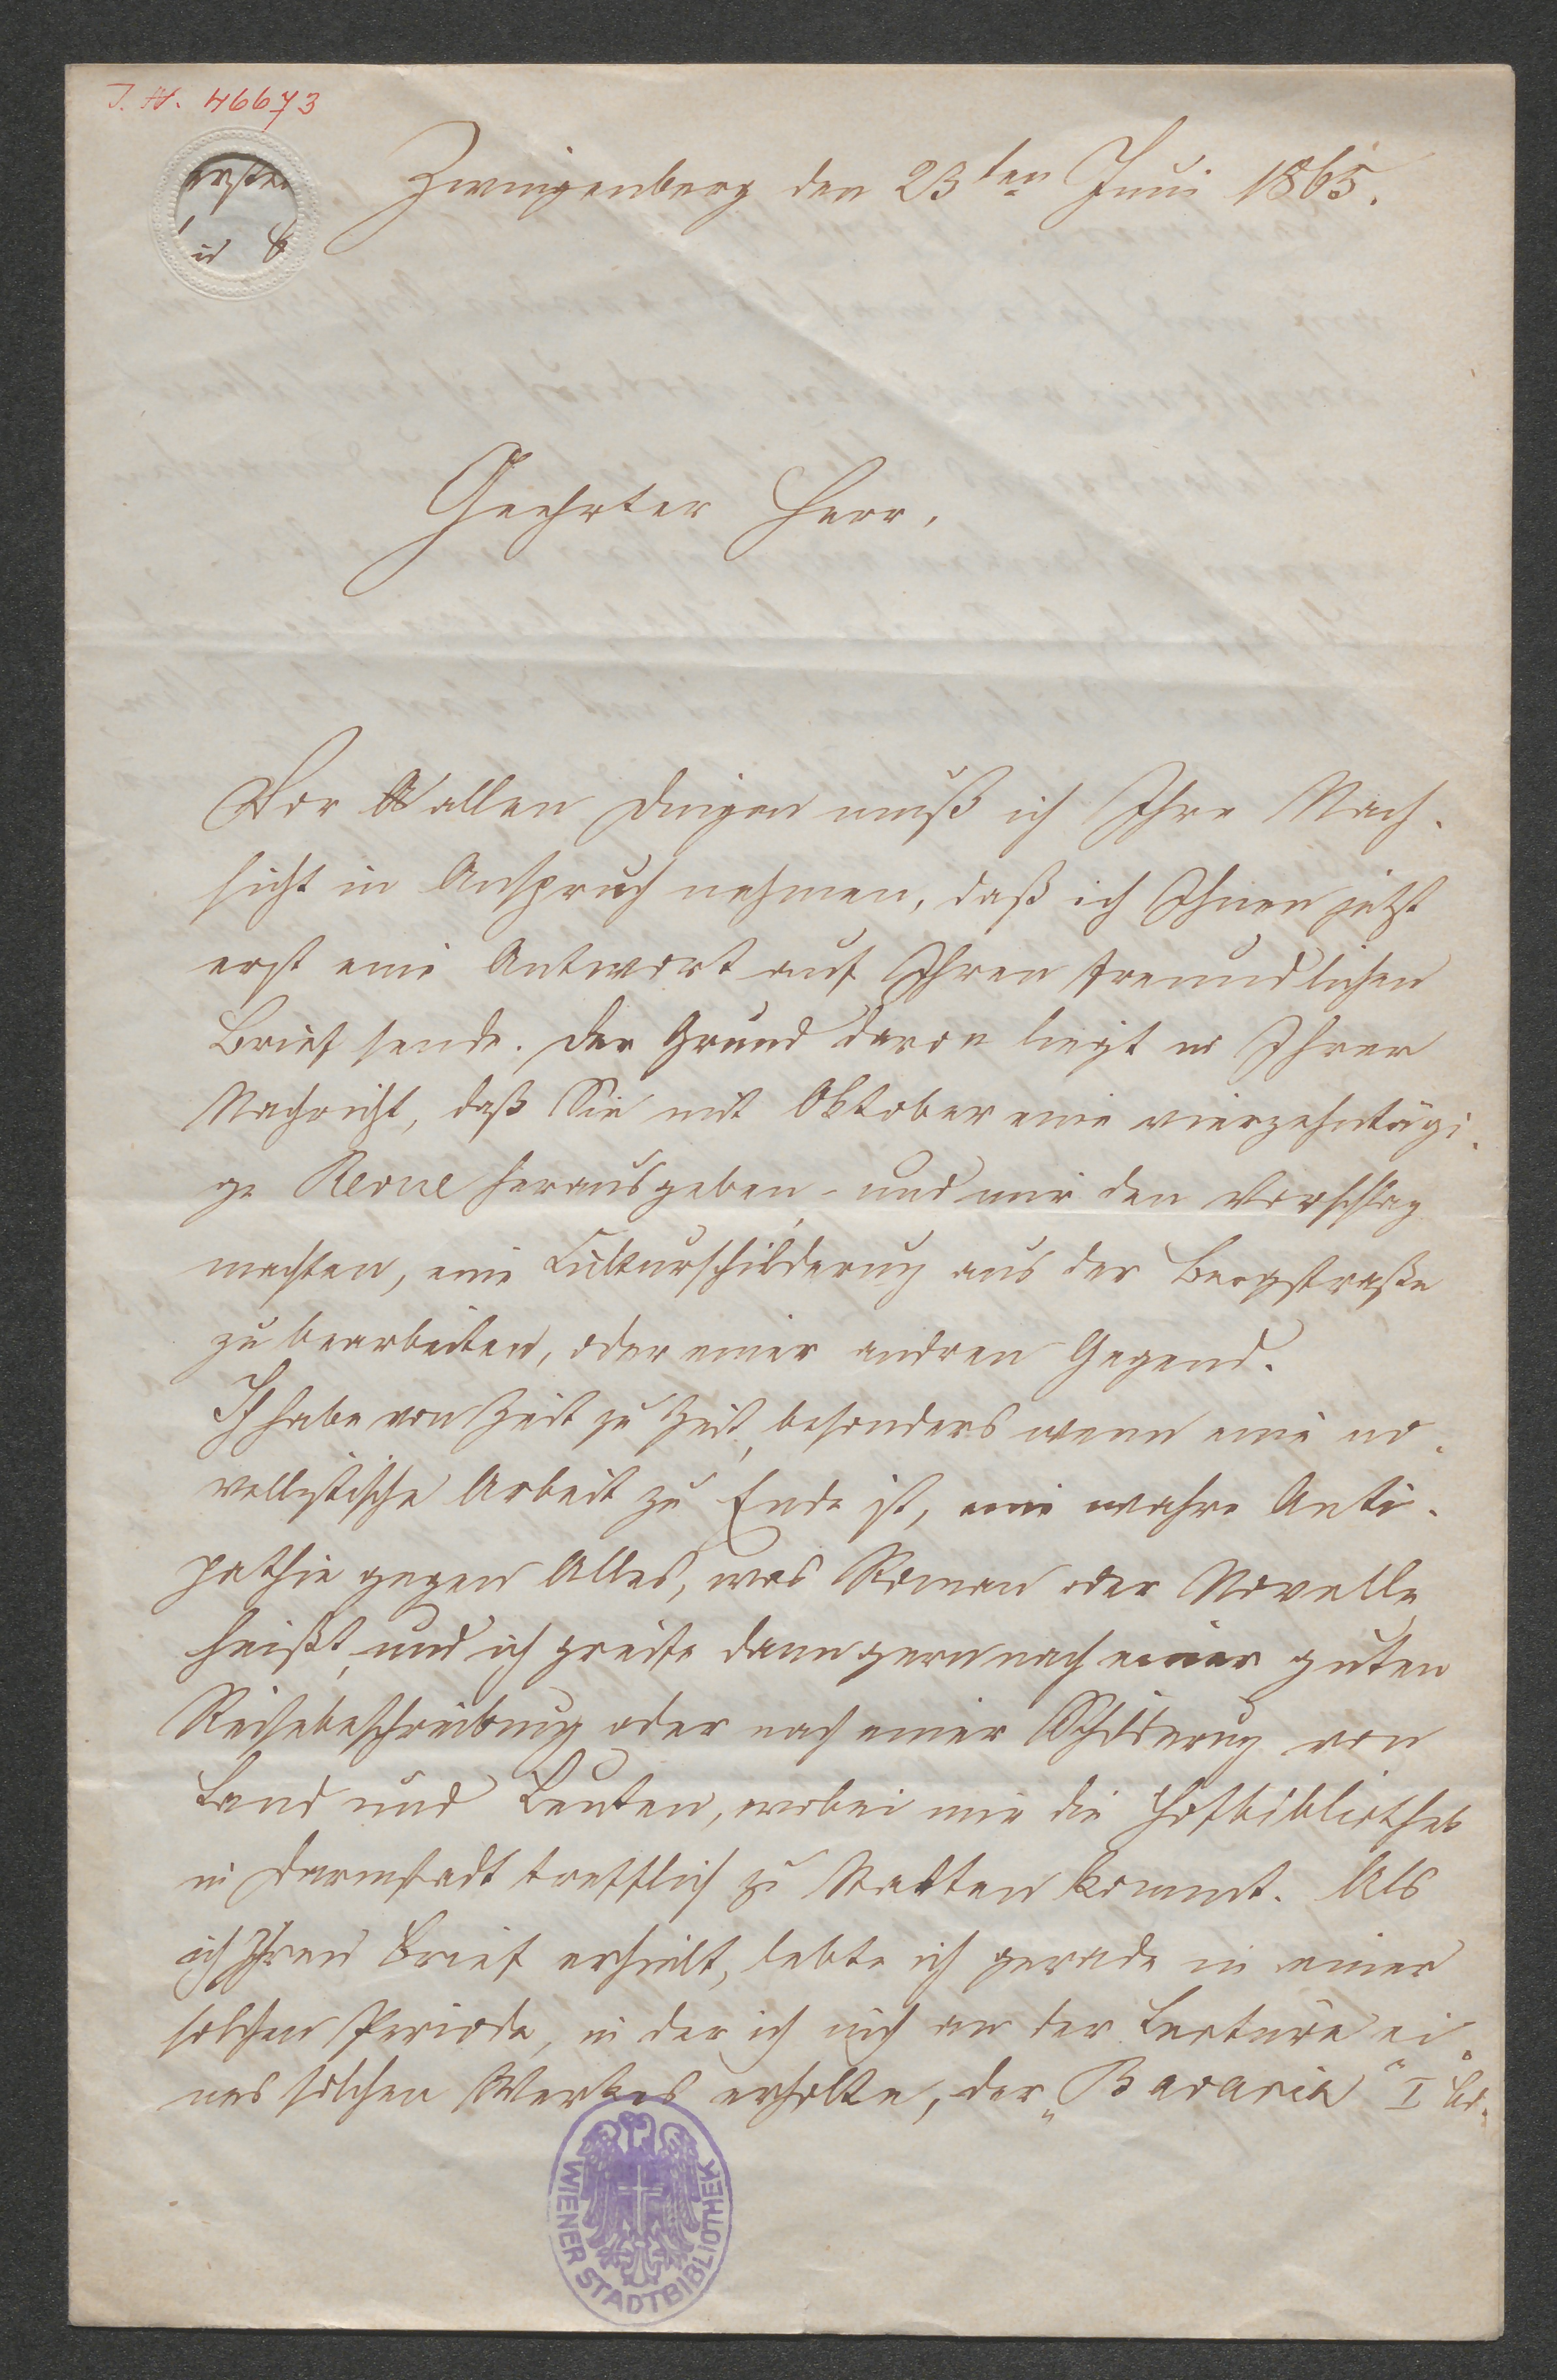 J. N. 46673
Zwingenberg den 23ten Juni 1865.
Geehrter Herr,
Vor allen Dingen muß ich Ihre Nach-
sicht in Anspruch nehmen, daß ich Ihnen jetzt
erst eine Antwort auf Ihren freundlichen
Brief sende. Der Grund davon liegt in Ihrer
Nachricht, daß Sie mit Oktober eine vierzehntägi-
ge Revue herausgeben - und mir den Vorschlag
machten, eine Culturschilderung aus der Bergstraße
zu bearbeiten, oder einer andren Gegend.
Ich habe von Zeit zu Zeit, besonders wenn eine no-
vellistische Arbeit zu Ende ist, eine wahre Anti-
pathie gegen Alles, was Roman oder Novelle
heißt, und ich greife dann gern nach einer guten
Reisebeschreibung oder nach einer Schilderung von
Land und Leuten, wobei mir die Hofbibliothek
in Darmstadt trefflich zu Statten kommt. Als
ich Ihren Brief erhielt, lebte ich gerade in einer
solchen Periode, in der ich mich an der Lectüre ei-
nes solchen Werkes erholte, der „Bavaria“ I Bd.
WIENER STADTBIBLIOTHEK